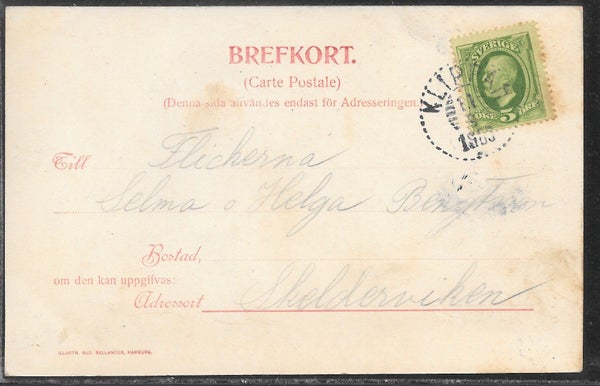 BREFKORT.
(Carte Postale)
(Denna sida användes endast för Adresseringen.
SVERIGE
5 ÖRE
Till Flickorna
Selma o Helga Bengtson
Bostad,
om den kan uppgifvas:
Adressort Skelderviken